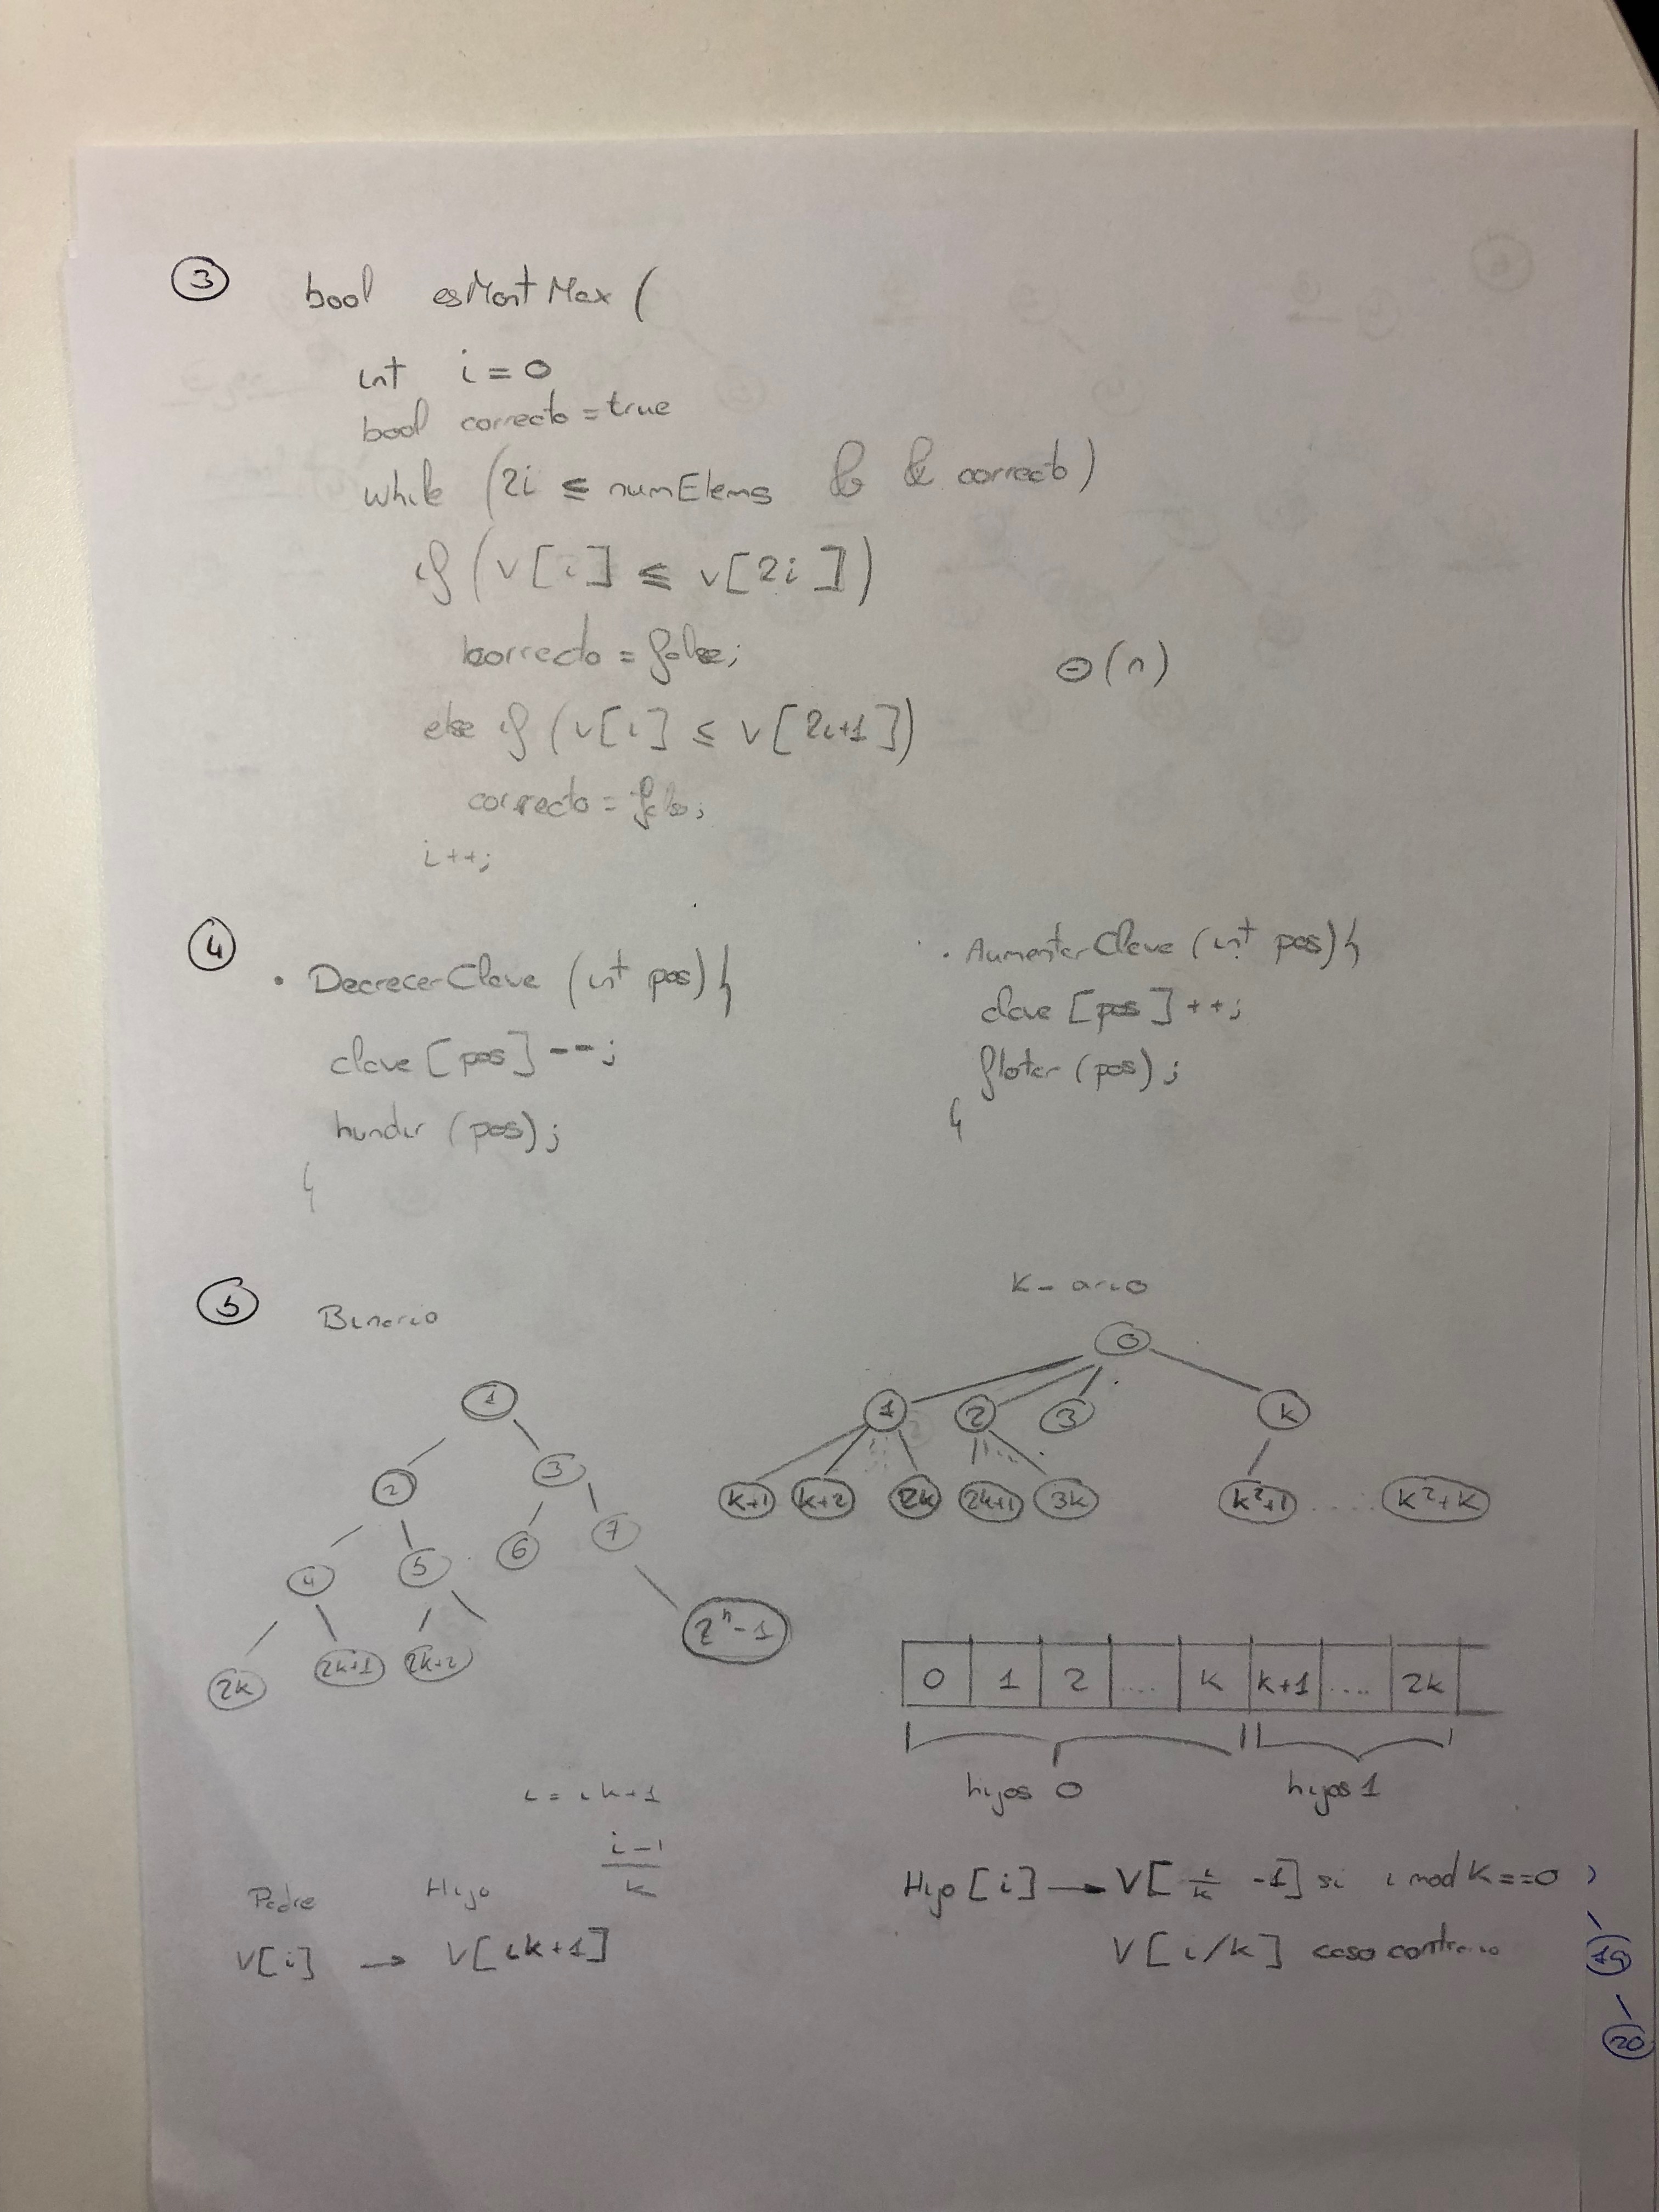 3 bool esMontMax (
int i = 0
bool correcto = true
while (2i ≤ numElems && correcto)
if (v[i] ≤ v[2i])
correcto = false;
else if (v[i] ≤ v[2i+1])
correcto = false;
Θ(n)
i++;
4
• DecrecerClave (int pos) {
clave [pos] --;
hundir (pos);
}
• AumentarClave (int pos) {
clave [pos] ++;
flotar (pos);
}
5 Binario
1
2 3
4 5 6 7
2k 2k+1 2k+2 2^h-1
K-ario
0
1 2 3 k
k+1 k+2 2k 2k+1 3k k²+1 ..... k²+k
0 1 2 .... k k+1 .... 2k
hijos 0 hijos 1
i = ik+1
i-1
k
Padre Hijo
V[i] → V[ik+1]
Hijo [i] → V[i/k -1] si i mod K==0
V[i/k] caso contrario
19
20